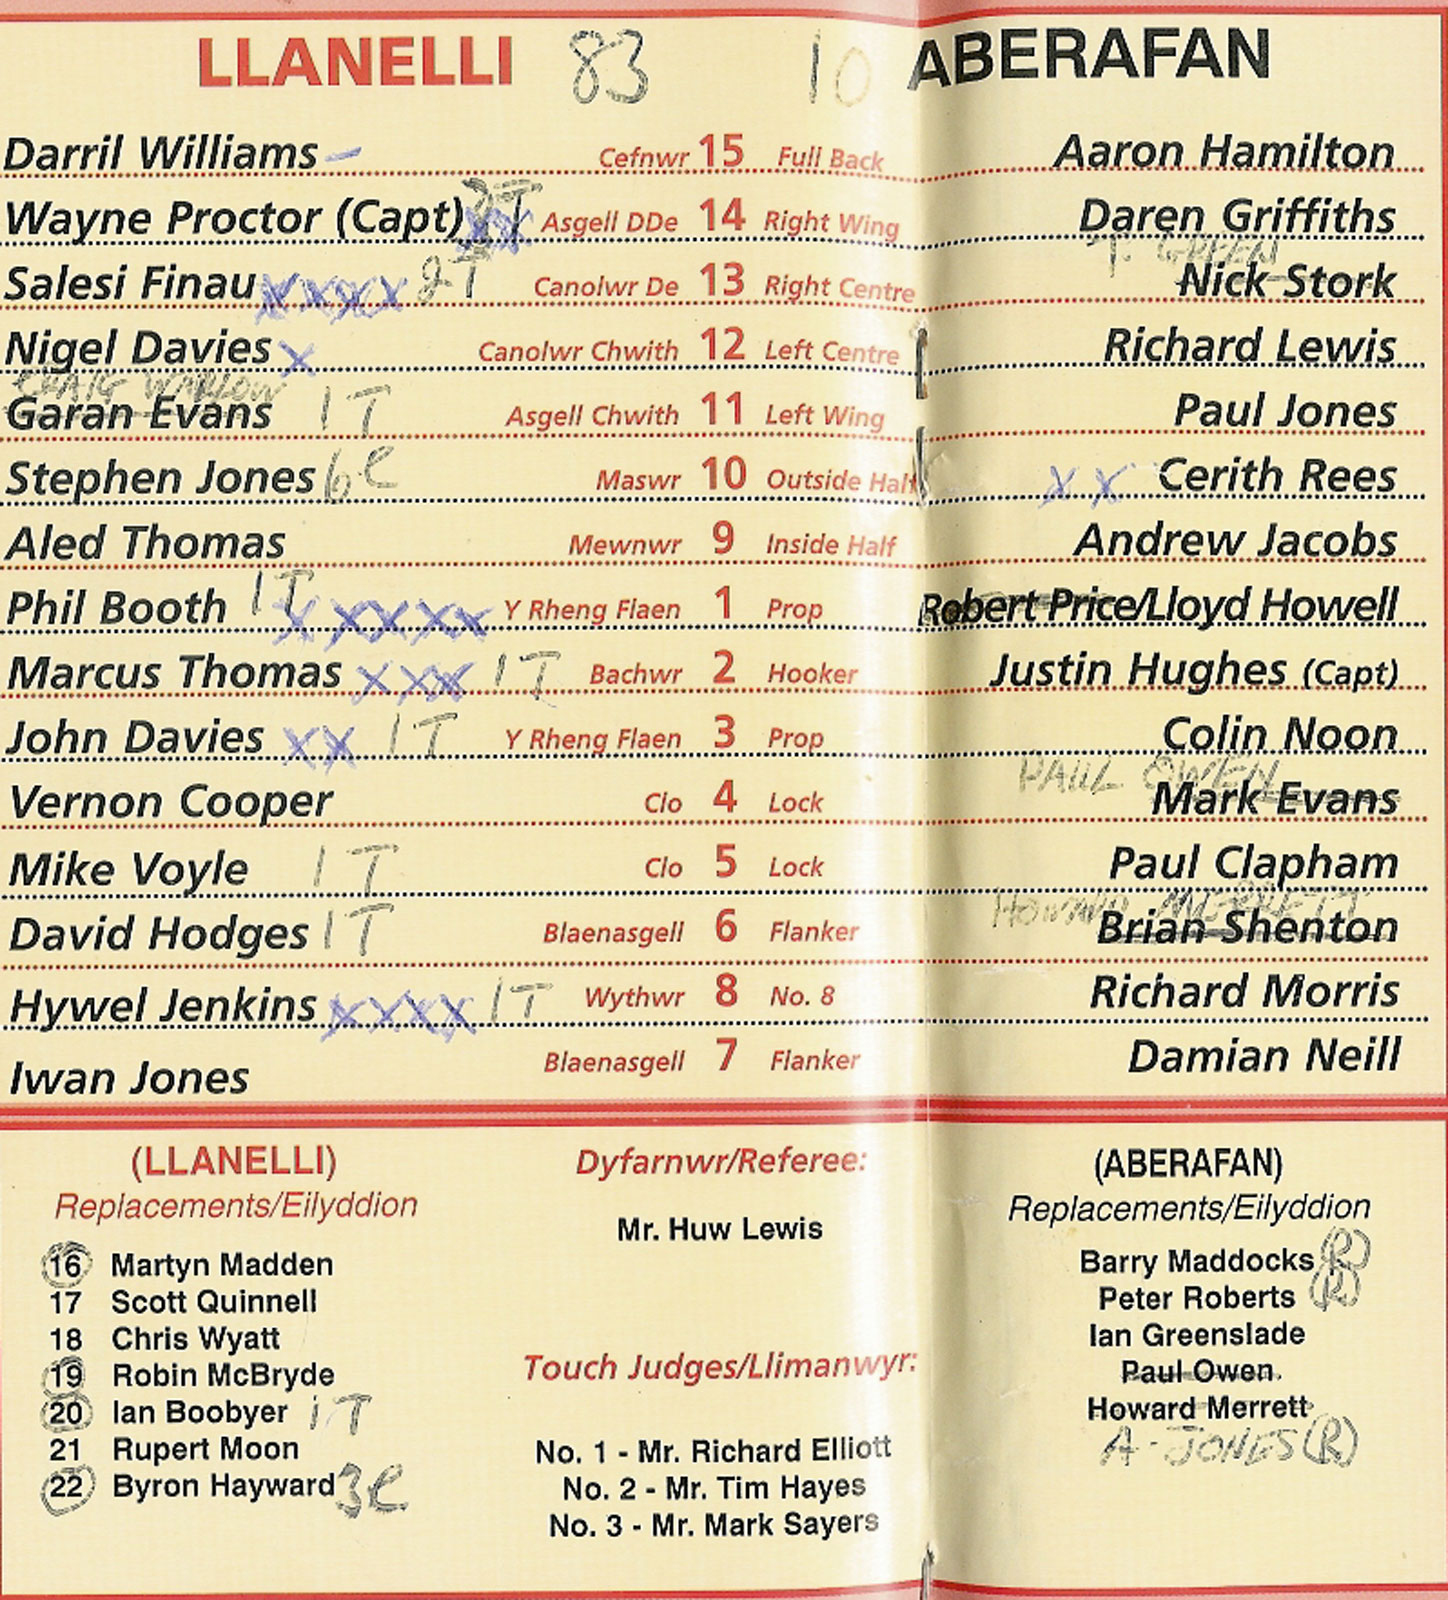 LLANELLI 83 10 ABERAFAN
Darril Williams - Cefnwr 15 Full Back Aaron Hamilton
Wayne Proctor (Capt) 2T xx Asgell DDe 14 Right Wing Daren Griffiths
T. GREEN
Salesi Finau xxxx 2T Canolwr De 13 Right Centre Nick Stork
Nigel Davies x Canolwr Chwith 12 Left Centre Richard Lewis
CRAIG WARLOW
Garan Evans 1T Asgell Chwith 11 Left Wing Paul Jones
Stephen Jones 6c Maswr 10 Outside Half xx Cerith Rees
Aled Thomas Mewnwr 9 Inside Half Andrew Jacobs
Phil Booth 1T xxxxx Y Rheng Flaen 1 Prop Robert Price/Lloyd Howell
Marcus Thomas xxxx 1T Bachwr 2 Hooker Justin Hughes (Capt)
John Davies xx 1T Y Rheng Flaen 3 Prop Colin Noon
PAUL OWEN
Vernon Cooper Clo 4 Lock Mark Evans
Mike Voyle 1T Clo 5 Lock Paul Clapham
HOWARD MERRETT
David Hodges 1T Blaenasgell 6 Flanker Brian Shenton
Hywel Jenkins xxxx 1T Wythwr 8 No. 8 Richard Morris
Iwan Jones Blaenasgell 7 Flanker Damian Neill
(LLANELLI)
Replacements/Eilyddion
16 Martyn Madden
17 Scott Quinnell
18 Chris Wyatt
19 Robin McBryde
20 Ian Boobyer 1T
21 Rupert Moon
22 Byron Hayward 3c
Dyfarnwr/Referee:
Mr. Huw Lewis
Touch Judges/Llimanwyr:
No. 1 - Mr. Richard Elliott
No. 2 - Mr. Tim Hayes
No. 3 - Mr. Mark Sayers
(ABERAFAN)
Replacements/Eilyddion
Barry Maddocks (R)
Peter Roberts (R)
Ian Greenslade
Paul Owen.
Howard Merrett
A. JONES (R)